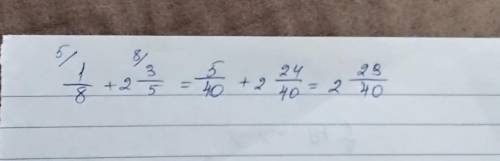 5/ 1/8 + 8/ 2 3/5 = 5/40 + 2 24/40 = 2 29/40